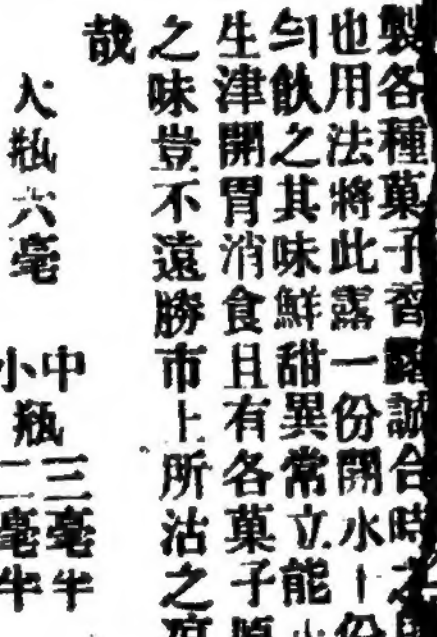 製各種菓子習露誠合時之
也用法將此露一份開水十份
勻飲之其味鮮甜異常立能
生津開胃消食且有各菓子
之味豈不遠勝市上所沽之
哉
大瓶六毫
中瓶三毫半
小瓶二毫半